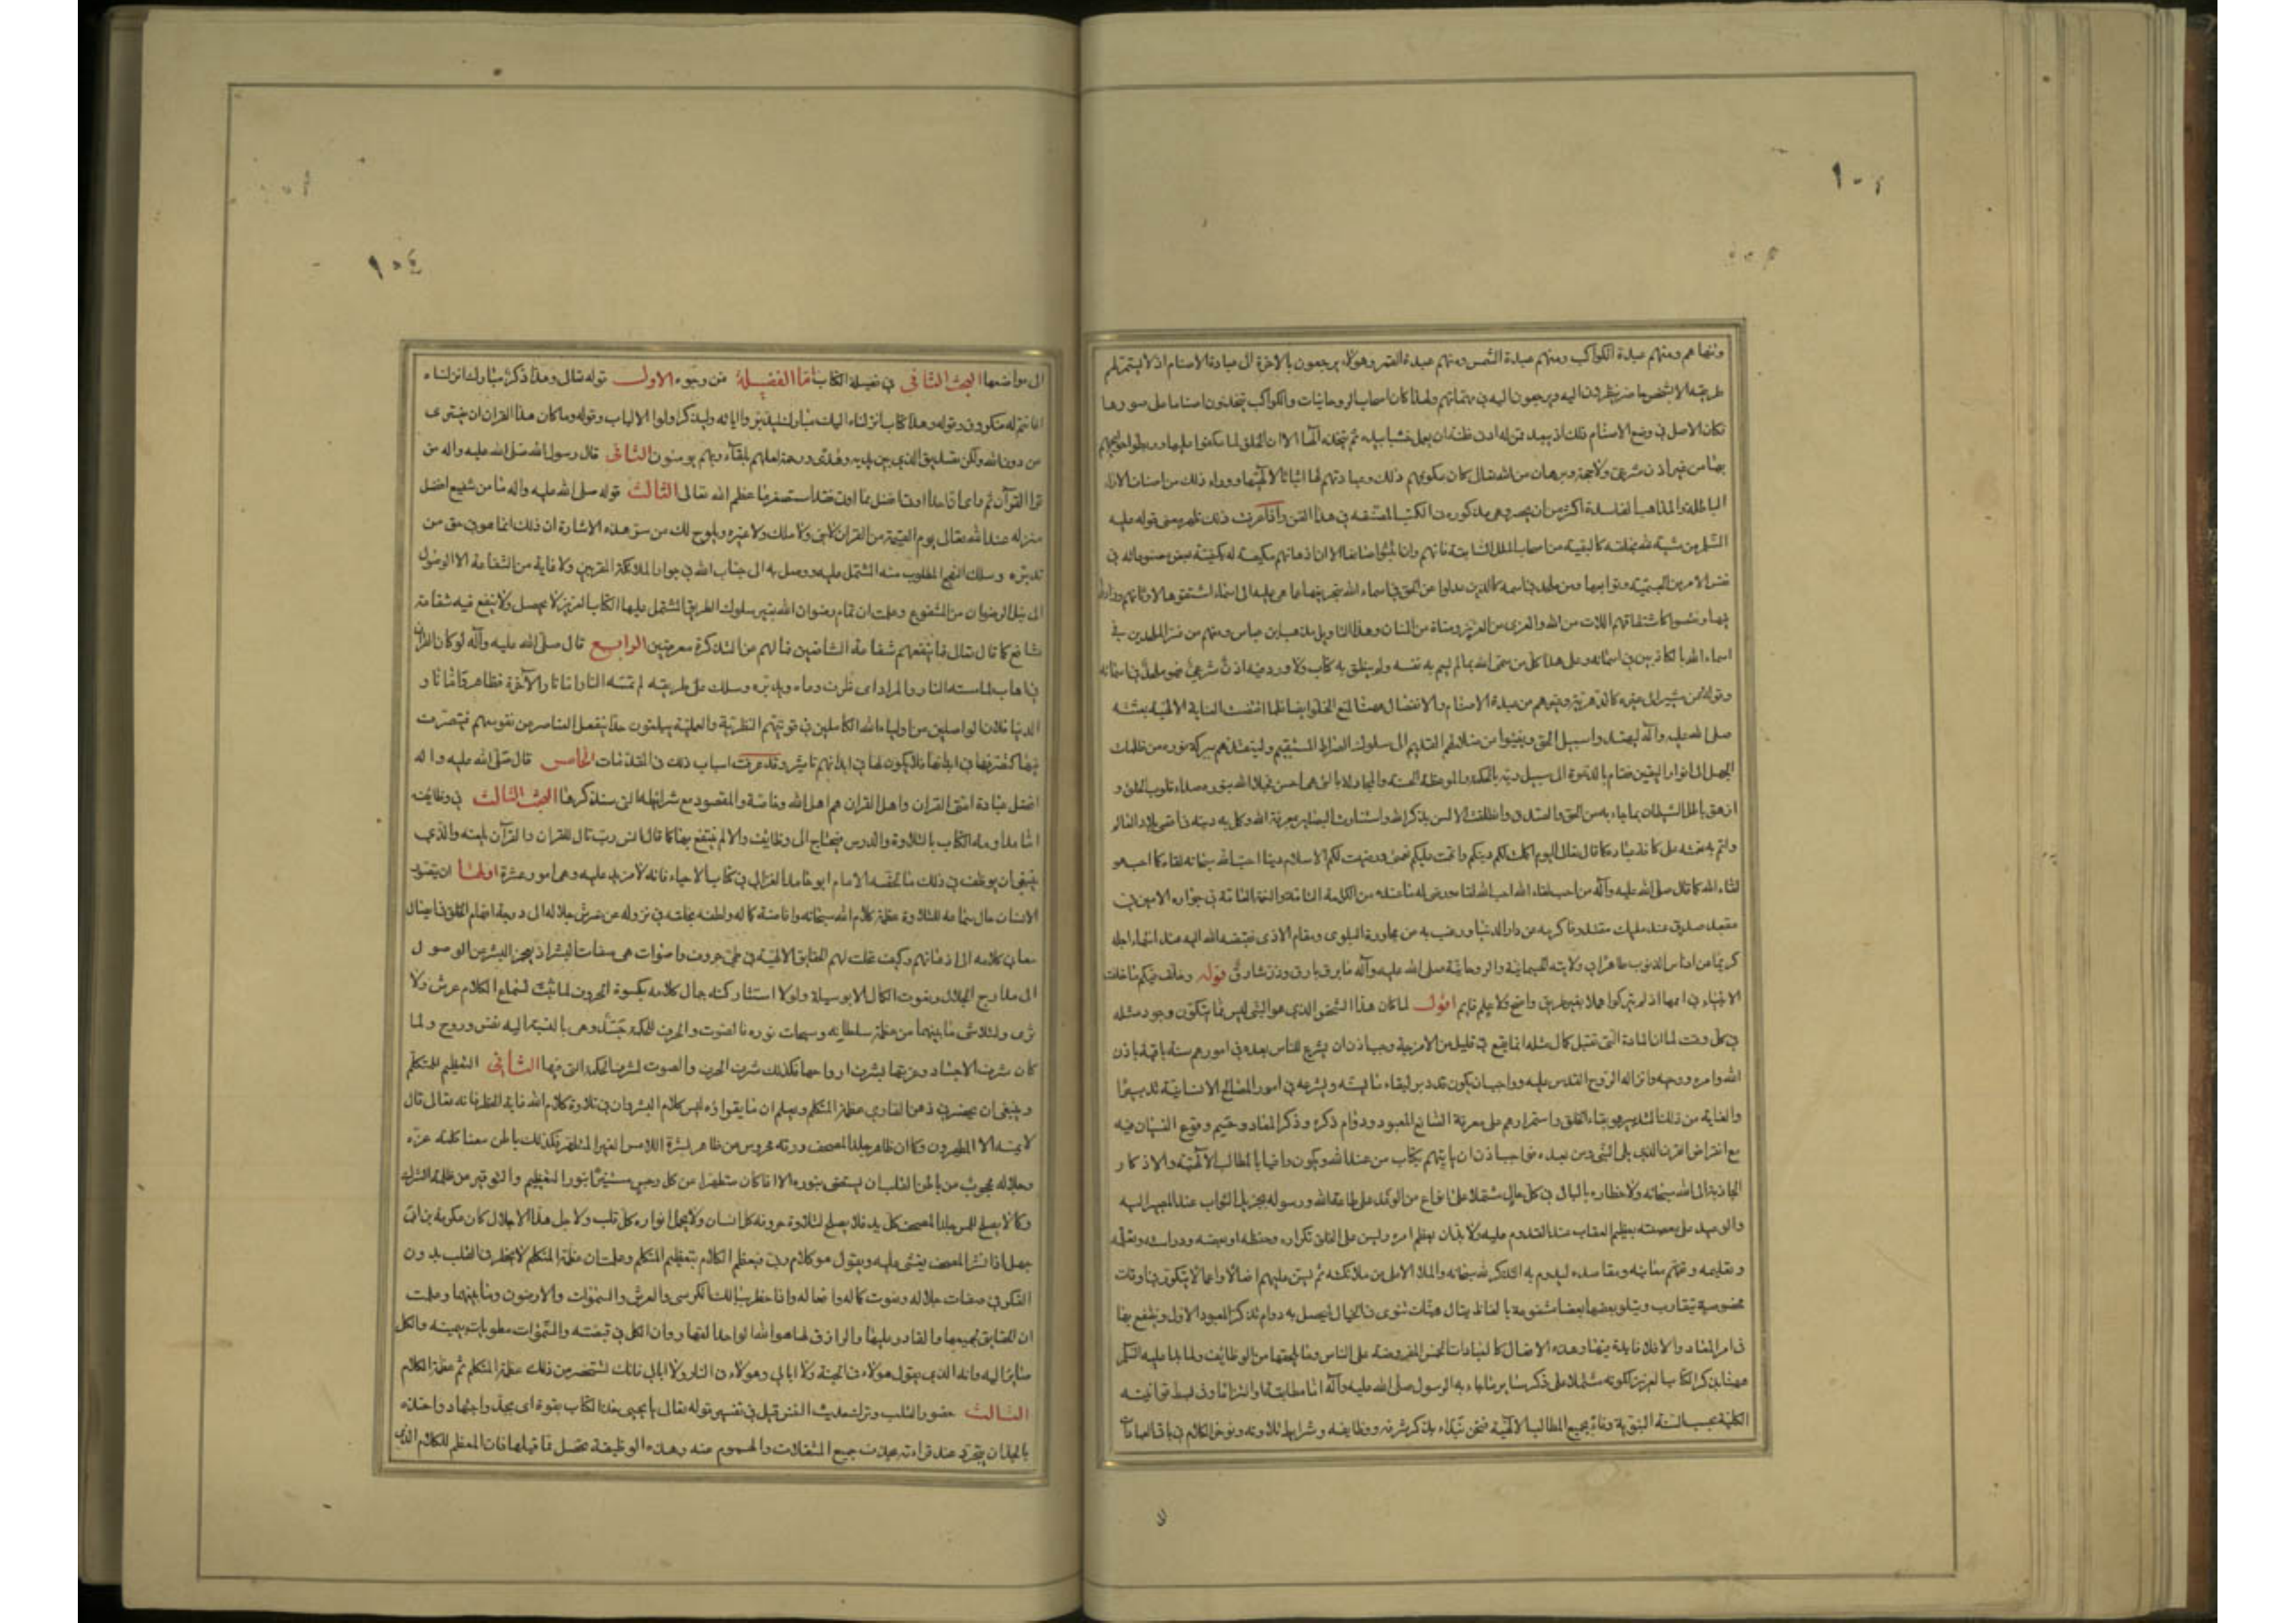 ونحاهم ومنهم عبدة الكواكب ومنهم عبدة الشمس ومنهم عبدة القمر وهؤلاء يرجعون بالاخرة الى عبادة الاصنام اذ لا يستمر لهم
طريقة الا بشخص حاضر ينظرون اليه ويرجعون اليه في مهماتهم ولهذا كان اصحاب الروحانيات والكواكب يتخذون اصناما على صورها
فكان الاصل في وضع الاصنام ذلك اذ يبعد ممن له ادنى فطنة ان يعمل خشبا بيده ثم يتخذه الها الا ان الخلق لما عكفوا عليها وربطوا حوائجهم
بها من غير اذن شرعي ولا حجة وبرهان من الله تعالى كان عكوفهم ذلك وعبادتهم لها اثباتا لالهيتها ووراء ذلك من اصناف الاراء
الباطلة والمذاهب الفاسدة اكثر من ان يحصى وهي مذكورة في الكتب المصنفة في هذا الفن واذا عرفت ذلك ظهر معنى قوله عليه
السلم من مشبه لله بخلقه كالبقية من اصحاب الملل السابقة فانهم وان اثبتوا صانعا الا ان اذهانهم مكيفة له بكيفية بعض مصنوعاته في
نفس الامر من الجسمية وتوابعها ومن ملحد في اسمه كالذين عدلوا عن الحق في اسماء الله بتحريفها عما هي عليه الى اسماء اشتقوها لاوثانهم وزادوا
فيها ونقصوا كاشتقاقهم اللات من الله والعزى من العزيز ومناة من المنان وهذا التاويل مذهب ابن عباس ومنهم من فسر الملحدين في
اسماء الله بالكاذبين في اسمائه وعلى هذا كل من سمى الله بما لم يسم به نفسه ولم ينطق به كتاب ولا ورد فيه اذن شرعي فهو ملحد في اسمائه
وقوله ومن مشير الى غيره كالدهرية وغيرهم من عبدة الاصنام والانفصال هيهنا لمنع الخلو ايضا فلما اقتضت العناية الالهية بعثه
صلى الله عليه وآله ليهتدوا سبيل الحق ويفيئوا من ضلالهم القديم الى سلوك الصراط المستقيم ولينقذهم ببركة نوره من ظلمات
الجهل الى انوار اليقين فقام بالدعوة الى سبيل ربه بالحكمة والموعظة الحسنة والمجادلة بالتي هي احسن فجلا الله بنوره صداء قلوب الخلق و
ازهق باطل الشيطان بما جاء به من الحق والصدق وانطلقت الالسن بذكر الله واستنارت البصاير بمعرفة الله وكمل به دينه في اقصى بلاد العالم
واتم به نعمته على كافة عباده كما قال تعالى اليوم اكملت لكم دينكم واتممت عليكم نعمتي ورضيت لكم الاسلام دينا احب الله سبحانه لقاءه كما احب هو
لقاء الله كما قال صلى الله عليه وآله من احب لقاء الله احب الله لقاءه ورضي له ما عنده من الكرامة التامة والنعمة العامة في جواره الامين في
مقعد صدق عند مليك مقتدر فاكرمه عن دار الدنيا ورغب به عن مجاورة البلوى ومقام الاذى فقبضه الله اليه عند انتهاء اجله
كريما عن ادناس الذنوب طاهرا في ولايته الجسمانية والروحانية صلى الله عليه وآله ما برق بارق وذر شارق قوله وخلف فيكم ما خلفت
الانبياء في اممها اذ لم يتركوهم هملا بغير طريق واضح ولا علم قايم اقول لما كان هذا الشخص الذي هو النبي ليس مما يتكون وجود مثله
في كل وقت لما ان المادة التي تقبل كمال مثله انما يقع في قليل من الامزجة وجب اذن ان يشرع للناس بعده في امورهم سنة باقية باذن
الله وامره ووحيه وانزاله الروح القدس عليه وواجب ان يكون قد دبر لبقاء ما يسنه ويشرعه في امور المصالح الانسانية تدبيرا
والغاية من ذلك التدبير هو بقاء الخلق واستمرارهم على معرفة الصانع المعبود ودوام ذكره وذكر المعاد وحسم وقوع النسيان فيه
مع انقراض القرن الذي يلي النبي ومن بعده فواجب اذن ان ياتيهم بكتاب من عند الله ويكون وافيا بالمطالب الالهية والاذكار
الجاذبة الى الله سبحانه ولاخطاره بالبال في كل حال مشتملا على انواع من الوعد على طاعة الله ورسوله بجزيل الثواب عند المصير اليه
والوعيد على معصيته بعظيم العقاب عند القدوم عليه ولا بد ان يعظم امره ويسن على الخلق تكراره وحفظه وبحثه ودراسته وتعلمه
وتعليمه وتفهم معانيه ومقاصده ليدوم به التذكر لله سبحانه والملاء الاعلى من ملائكته ثم يسن عليهم افعالا واعمالا يتكرر في اوقات
مخصوصة يتقارب ويتلو بعضها بعضا مشفوعة بالفاظ يقال ونيات تنوى في الخيال ليحصل به دوام تذكر المعبود الاول وينتفع بها
في امر المعاد والا فلا فايدة فيها وهذه الافعال كالعبادات الخمس المفروضة على الناس وما يلحقها من الوظائف ولما بدا عليه السلم
هيهنا بذكر الكتاب العزيز لكونه مشتملا على ذكر ساير ما جاء به الرسول صلى الله عليه وآله اما مطابقة او التزاما وفي بسط قوانينه
الكلية بحسب السنة النبوية وفاء بجميع المطالب الالهية فنحن نبداء بذكر شرفه ووظايفه وشرايط تلاوته ونوخر الكلام في باقي العبادات
الى مواضعها البحث الثاني في فضيلة الكتاب اما الفضيلة فمن وجوه الاول قوله تعالى وهذا ذكر مبارك انزلناه
افانتم له منكرون وقوله وهذا كتاب انزلناه اليك مبارك ليدبروا اياته وليذكر اولوا الالباب وقوله وما كان هذا القران ان يفترى
من دون الله ولكن تصديق الذي بين يديه وهدى ورحمة لعلهم بلقاء ربهم يومنون الثاني قال رسول الله صلى الله عليه واله من
قرا القرآن ثم راى ان احدا اوتي افضل مما اوتي فقد استصغر ما عظم الله تعالى الثالث قوله صلى الله عليه واله ما من شفيع افضل
منزلة عند الله تعالى يوم القيمة من القران لا نبي ولا ملك ولا غيره ويلوح لك من سر هذه الاشارة ان ذلك انما هو في حق من
تدبره وسلك النهج المطلوب منه المشتمل عليه ووصل به الى جناب الله في جوار الملائكة المقربين ولا غاية من الشفاعة الا الوصول
الى نيل الرضوان من المشفوع وعلمت ان تمام رضوان الله بغير سلوك الطريق المشتمل عليها الكتاب العزيز لا يحصل ولا ينفع فيه شفاعة
شافع كما قال تعالى فما تنفعهم شفاعة الشافعين فما لهم عن التذكرة معرضين الرابع قال صلى الله عليه وآله لو كان القران
في اهاب لما مسته النار والمراد اى ظرف وعاه وتدبره وسلك على طريقته لم تمسه النار اما نار الآخرة فظاهر واما نار
الدنيا فلان الواصلين من اولياء الله الكاملين في قوتيهم النظرية والعملية يبلغون حدا ينفعل العناصر عن نفوسهم فيتصرف
فيها كتصرفها في ابدانها فلا يكون لها في ابدانهم تاثير وقد عرفت اسباب ذلك في المقدمات الخامس قال صلى الله عليه واله
افضل عبادة امتى القران واهل القران هم اهل الله وخاصته والمقصود مع شرائطها التي سنذكرها البحث الثالث في وظايف
اشاملاومه الكتاب بالتلاوة والدرس فيحتاج الى وظايف والا لم ينتفع بها كما قال انس رب تال للقران والقرآن يلعنه والذي
ينبغي ان يوظف في ذلك ما لخصه الامام ابو حامد الغزالي في كتاب الاحياء فانه لا مزيد عليه وهي امور عشرة اولها ان يتصور
الانسان حال سماعه للتلاوة عظمة كلام الله سبحانه وافاضة كماله ولطفه بخلقه في نزوله عن عرش جلاله الى درجة افهام الخلق في ايصال
معاني كلامه الى اذهانهم وكيف تجلت لهم الحقايق الالهية في طي حروف واصوات هي صفات البشر اذ يعجز البشر عن الوصول
الى مدارج الجلال ونعوت الكمال الا بوسيلة ولولا استتار كنه جمال كلامه بكسوة الحروف لما ثبت لسماع الكلام عرش ولا
ثرى ولتلاشى ما بينهما من عظمة سلطانه وسبحات نوره فالصوت والحرف للحكمة جسد وهي بالنسبة اليه نفس وروح ولما
كان شرف الاجساد وعزتها بشرف ارواحها فكذلك شرف الحرف والصوت لشرف الحكمة التي فيها الثاني التعظيم للمتكلم
وينبغي ان يحضر في ذهن القاري عظمة المتكلم ويعلم ان ما يقراءه ليس كلام البشر وان في تلاوة كلام الله غاية الخطر فانه تعالى قال
لا يمسه الا المطهرون وكما ان ظاهر جلد المصحف وورقه محروس عن ظاهر بشرة اللامس الغير المتطهر فكذلك باطن معناه بحكم عزه
وجلاله محجوب عن باطن القلب ان يستضئ بنوره الا اذا كان متطهرا عن كل رجس مستنيرا بنور التعظيم والتوقير عن ظلمة الشرك
وكما لا يصلح للمس جلد المصحف كل يد فلا يصلح لتلاوة حروفه كل لسان ولا لحمل انواره كل قلب ولاجل هذا الاجلال كان عكرمة بن ابي
جهل اذا نشر المصحف يغشى عليه ويقول هو كلام ربي فيعظم الكلام بتعظيم المتكلم وعلمت ان عظمة المتكلم لا يخطر في القلب بدون
الفكر في صفات جلاله ونعوت كماله وافعاله واذا خطر ببالك الكرسي والعرش والسموات والارضون وما بينهما وعلمت
ان الخالق لجميعها والقادر عليها والرازق لها هو الله الواحد القهار وان الكل في قبضته والسموات مطويات بيمينه والكل
سائر اليه وانه الذي يقول هؤلاء في الجنة ولا ابالي وهؤلاء في النار ولا ابالي فانك تستحضر من ذلك عظمة المتكلم ثم عظمة الكلام
الثالث حضور القلب وترك حديث النفس قيل في تفسير قوله تعالى يا يحيى خذ الكتاب بقوة اى بجد واجتهاد واخذه
بالجد ان يتجرد عند قراءته بحذف جميع المشغلات والهموم عنه وهذه الوظيفة تحصل مما قبلها فان المعظم للكلام الذي